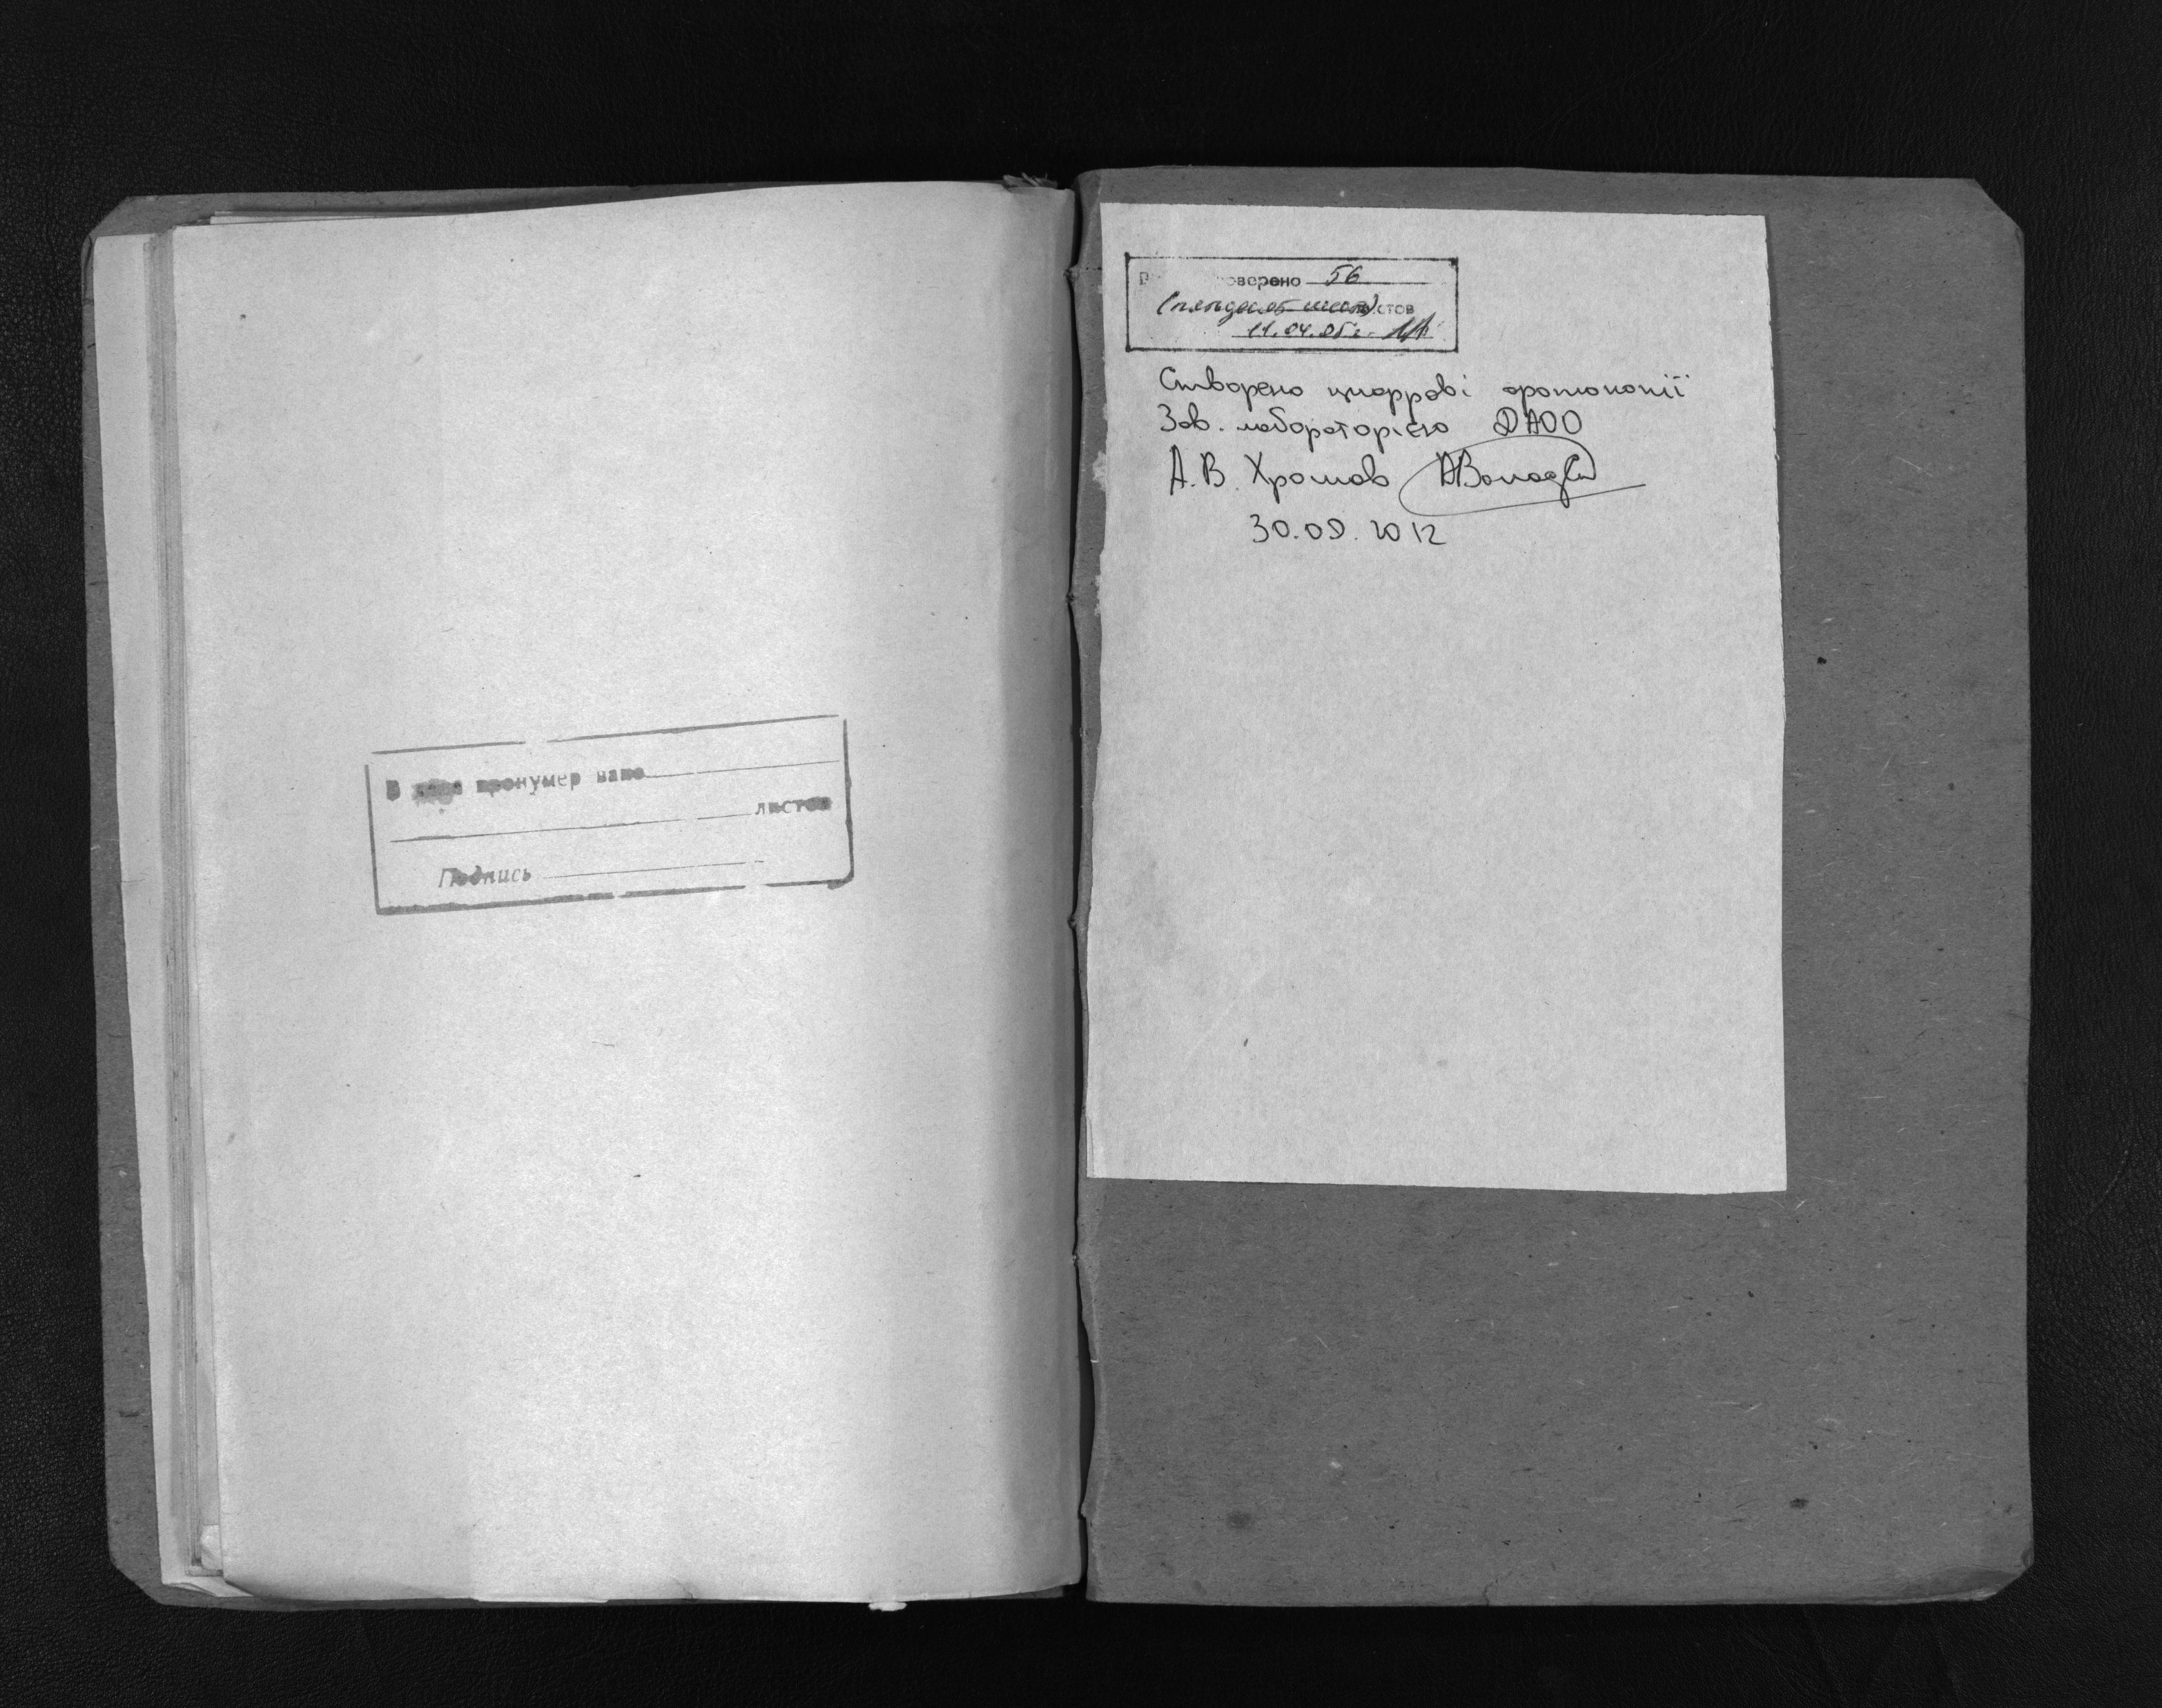 В деле пронумеровано
листов
Подпись
проверено 56
(пятьдесят шесть) листов
11.04.05 г.
Створено цифрові фотокопії
Зав. лабораторією ДАОО
А.В. Хромов
30.08.2012